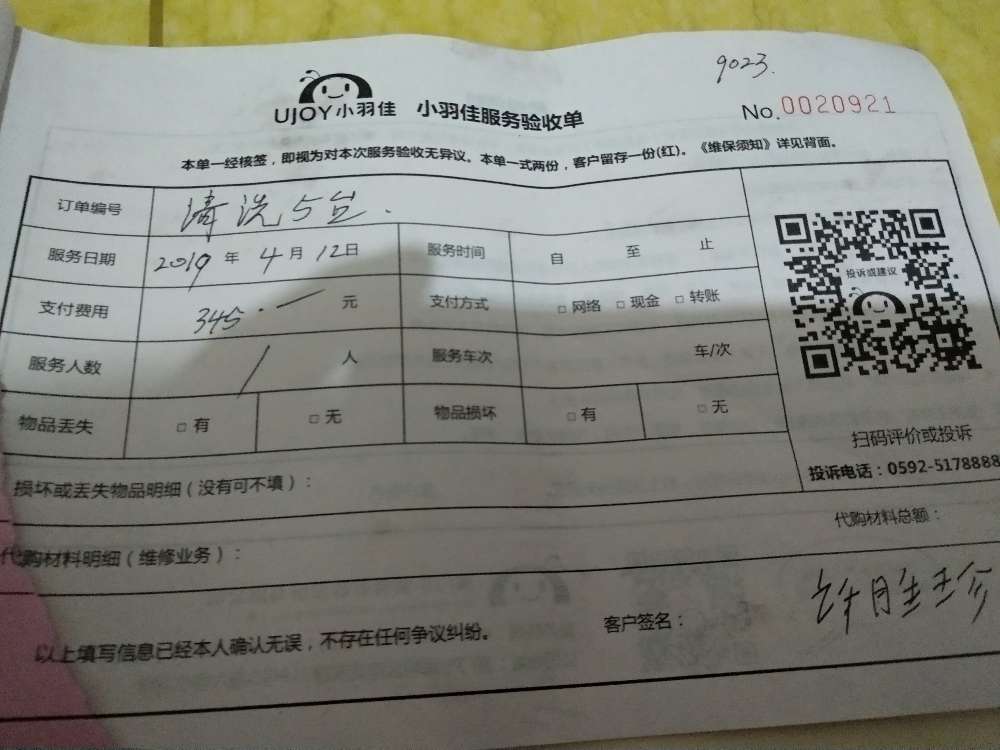 9023.
UJOY小羽佳 小羽佳服务验收单 No.0020921
本单一经核签，即视为对本次服务验收无异议。本单一式两份，客户留存一份(红)。《维保须知》详见背面。
订单编号 清洗5台.
服务日期 2019年4月12日 服务时间 自 至 止
支付费用 345.一元 支付方式 □网络 □现金 □转账
服务人数 / 人 服务车次 车/次
物品丢失 □有 □无 物品损坏 □有 □无
投诉或建议
扫码评价或投诉
投诉电话：0592-5178888
损坏或丢失物品明细（没有可不填）：
代购材料总额：
代购材料明细（维修业务）：
以上填写信息已经本人确认无误，不存在任何争议纠纷。 客户签名： 许胜珍